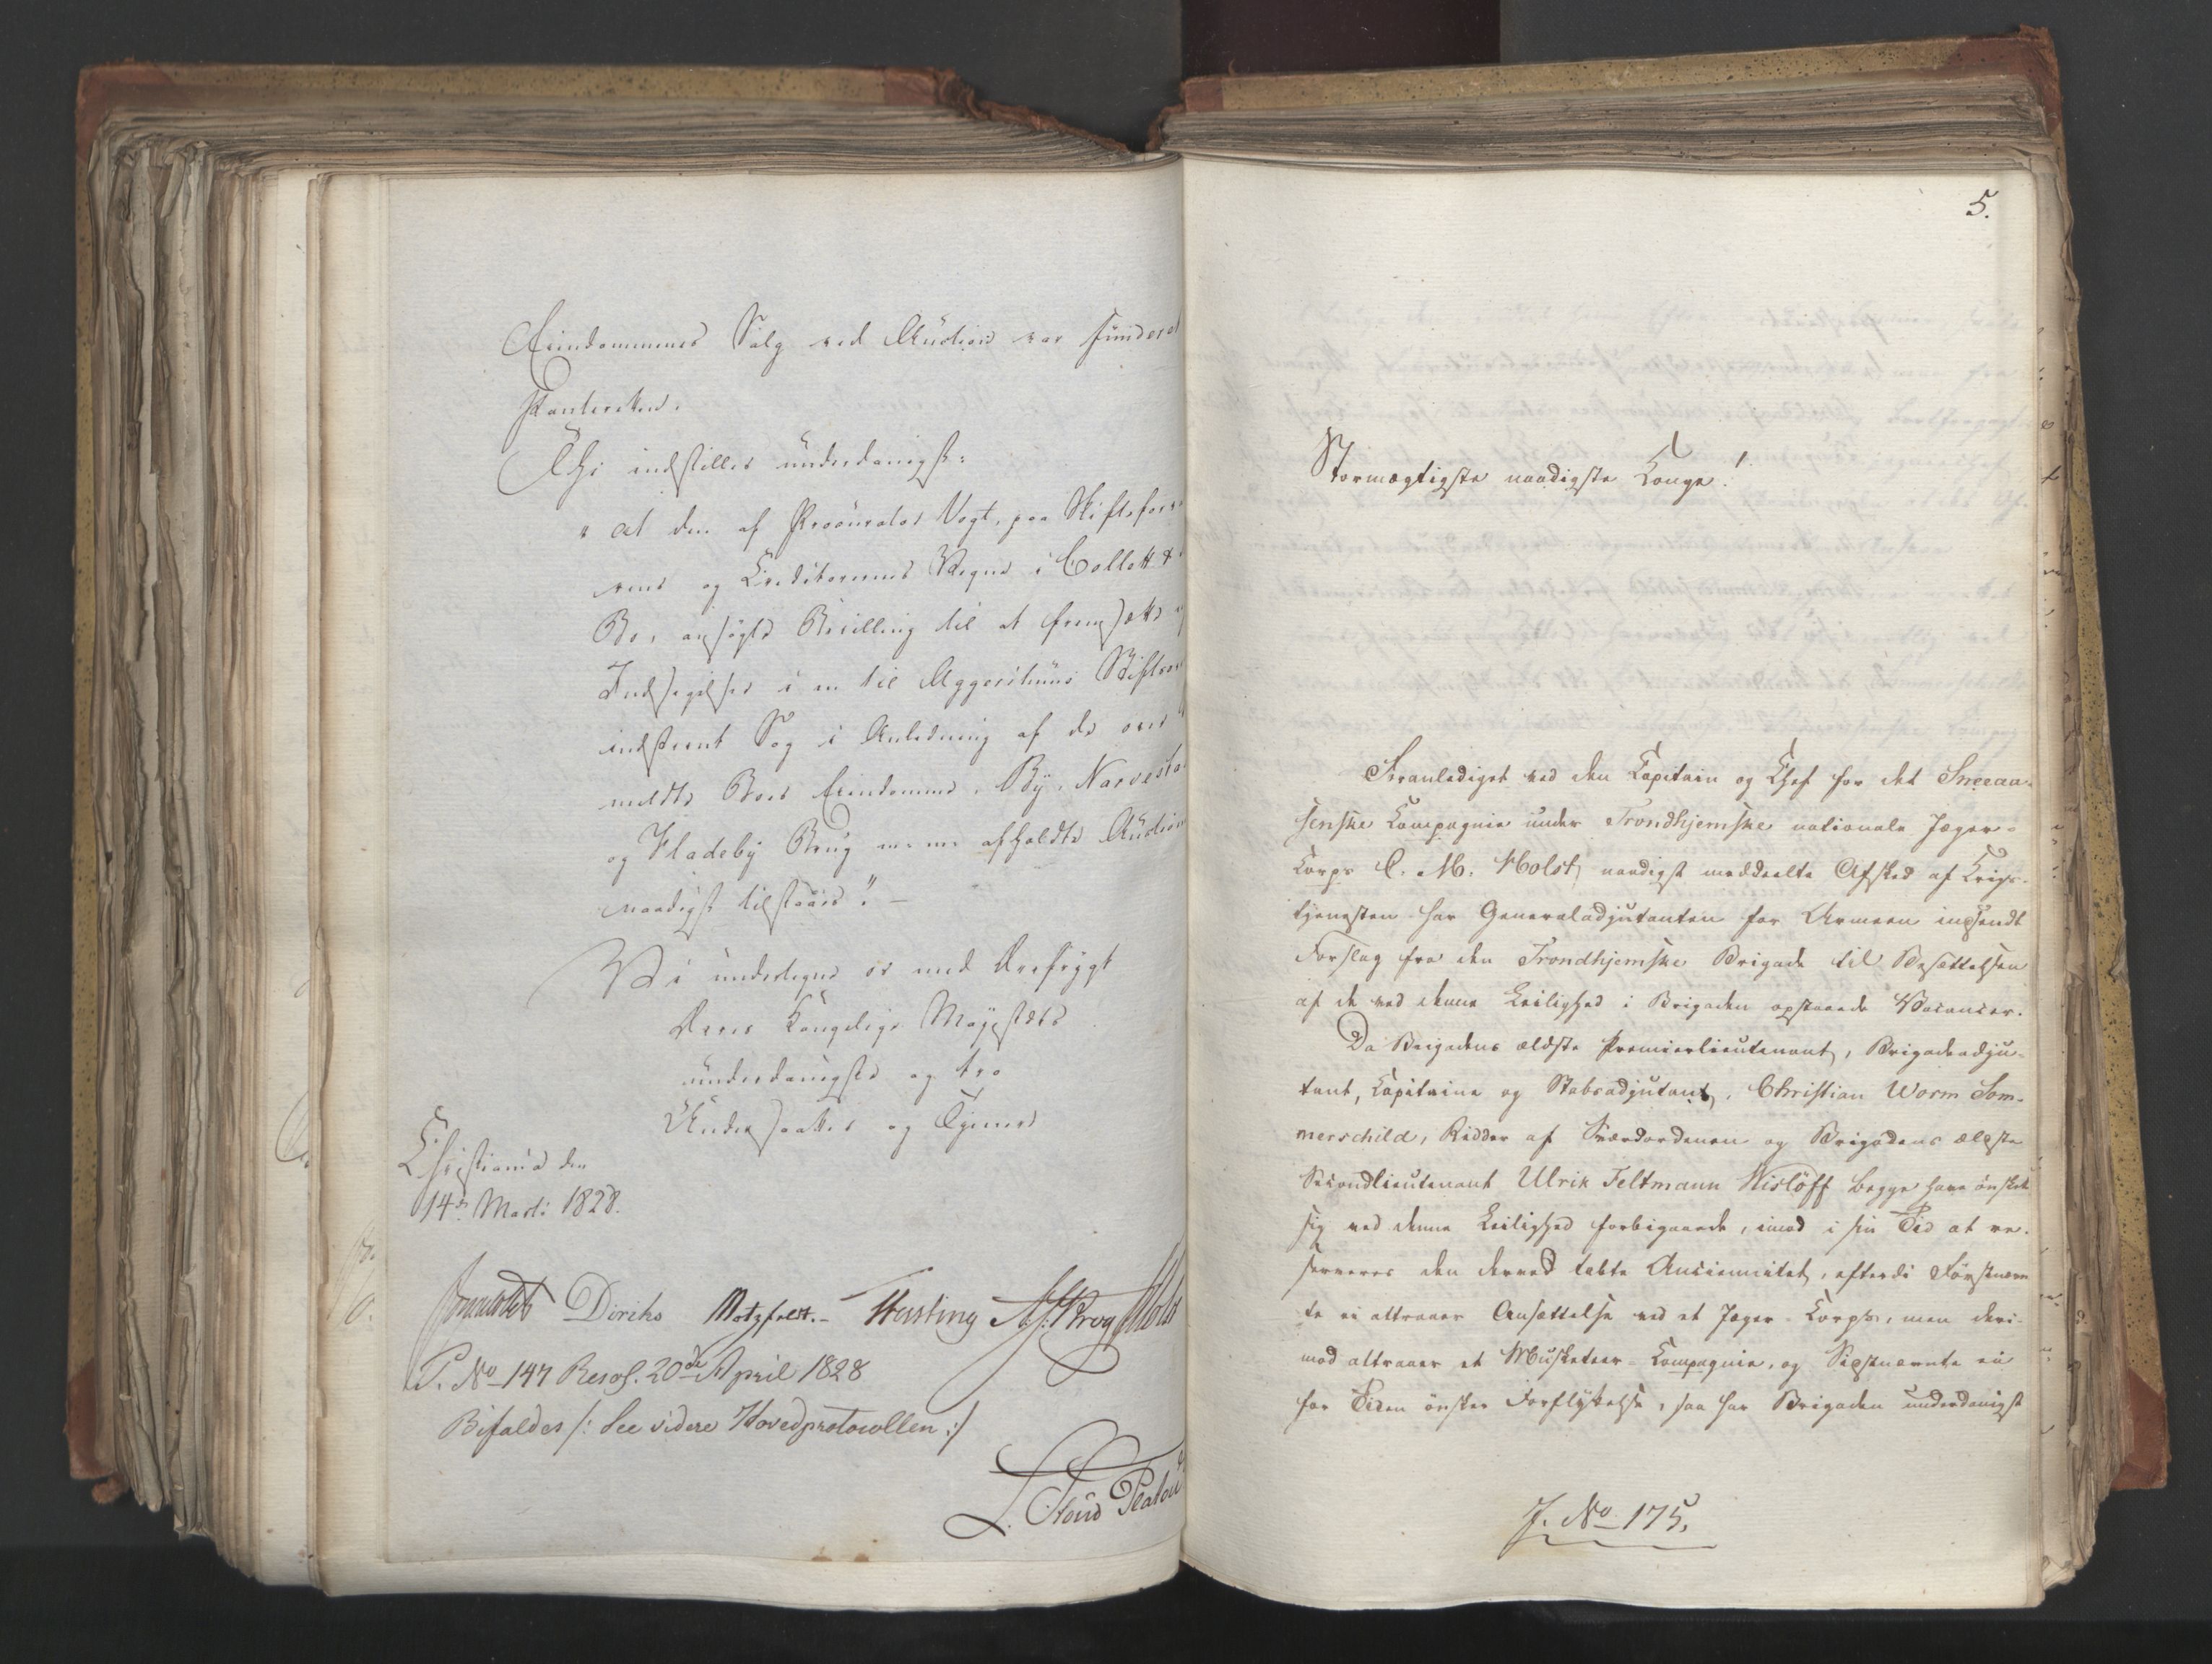 Eiendommenes Salg ved Auction var funderet
Panteretten.
Thi indstilles underdanigst:
"at den af Procurator Vogt, paa Skiftsforval
rens og Creditorernes Vegne i Collett &
Bo, ansøgte Bevilling til at fremsætte
Indsigelser i en til Aggershuus Stiftsover
indstevnt Sag i Anledning af de oven
meldte Boes Eiendomme, By, Narvesta
og Fladeby Brug m: m: afholdte Auction
naadigst tilstaaes". —
Vi undertegne os med Ærefrygt
Deres Kongelige Majestæts
underdanigste og tro
Undersaatter og Tjenere
Christiania den
14de Marti 1828.
Diriks Motzfeldt. Fasting Krog Holst
P. No 147 Resol. 20de April 1828
Bifaldes /: See videre Hovedprotocollen :/
Stoud Platou
5.
Stormægtigste naadigste Konge!
Foranlediget ved den Capitain og Chef for det Sneeaa-
senske Compagnie under Trondhjemske nationale Jæger-
Corps C. M. Holst, naadigst meddeelte Afsked af Krigs-
tjenesten har Generaladjutanten for Armeen indsendt
Forslag fra den Trondhjemske Brigade til Besættelsen
af de ved denne Leilighed i Brigaden opstaaede Vacancer.
Da Brigadens ældste Premierlieutenant, Brigadeadju-
tant, Capitaine og Stabsadjutant, Christian Worm Som-
merschild, Ridder af Sværdordenen og Brigadens ældste
Secondlieutenant Ulrik Feltmann Wislöff begge have ønsket
sig ved denne Leilighed forbigaaede, imod i sin Tid at re-
serveres den derved tabte Anciennitet, efterdi Førstnævn
te ei attraaer Ansættelse ved et Jæger-Corps, men deri-
mod attraaer et Musketeer-Compagnie, og Sidstnævnte ei
for Tiden ønsker Forflyttelse, saa har Brigaden underdanigst
J. No 175.